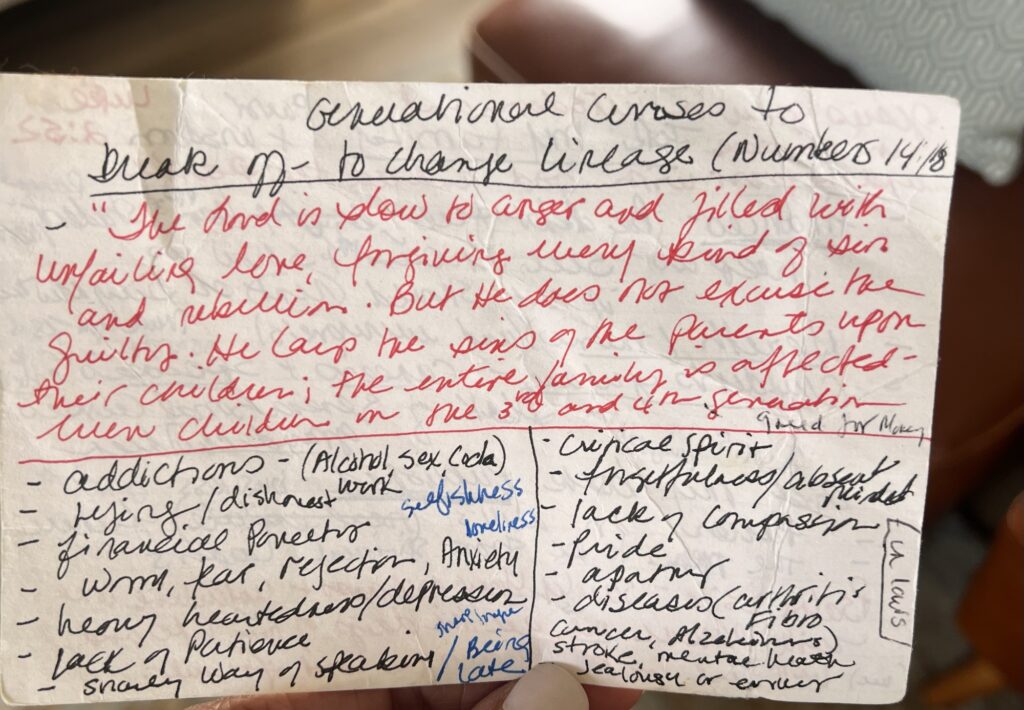 Generational Curses to
break off - to change lineage (Numbers 14:18
- "The Lord is slow to anger and filled with
unfailing love, forgiving every kind of sin
and rebellion. But He does not excuse the
guilty. He lays the sins of the parents upon
their children; the entire family is affected -
even children in the 3rd and 4th generation
Greed for Money
- addictions - (Alcohol, sex, Coda)
work
- lying/dishonest
selfishness
loneliness
- financial Poverty
- worry, fear, rejection, Anxiety
- heavy heartedness/depression
- lack of Patience
- snarley way of speaking / Being
Late
- critical spirit
- forgetfulness/absent
minded
- lack of compassion
- Pride
- apathy
- diseases (arthritis
Fibro
Cancer, Alzeheimers)
stroke, mental health
jealousy or envy
in laws